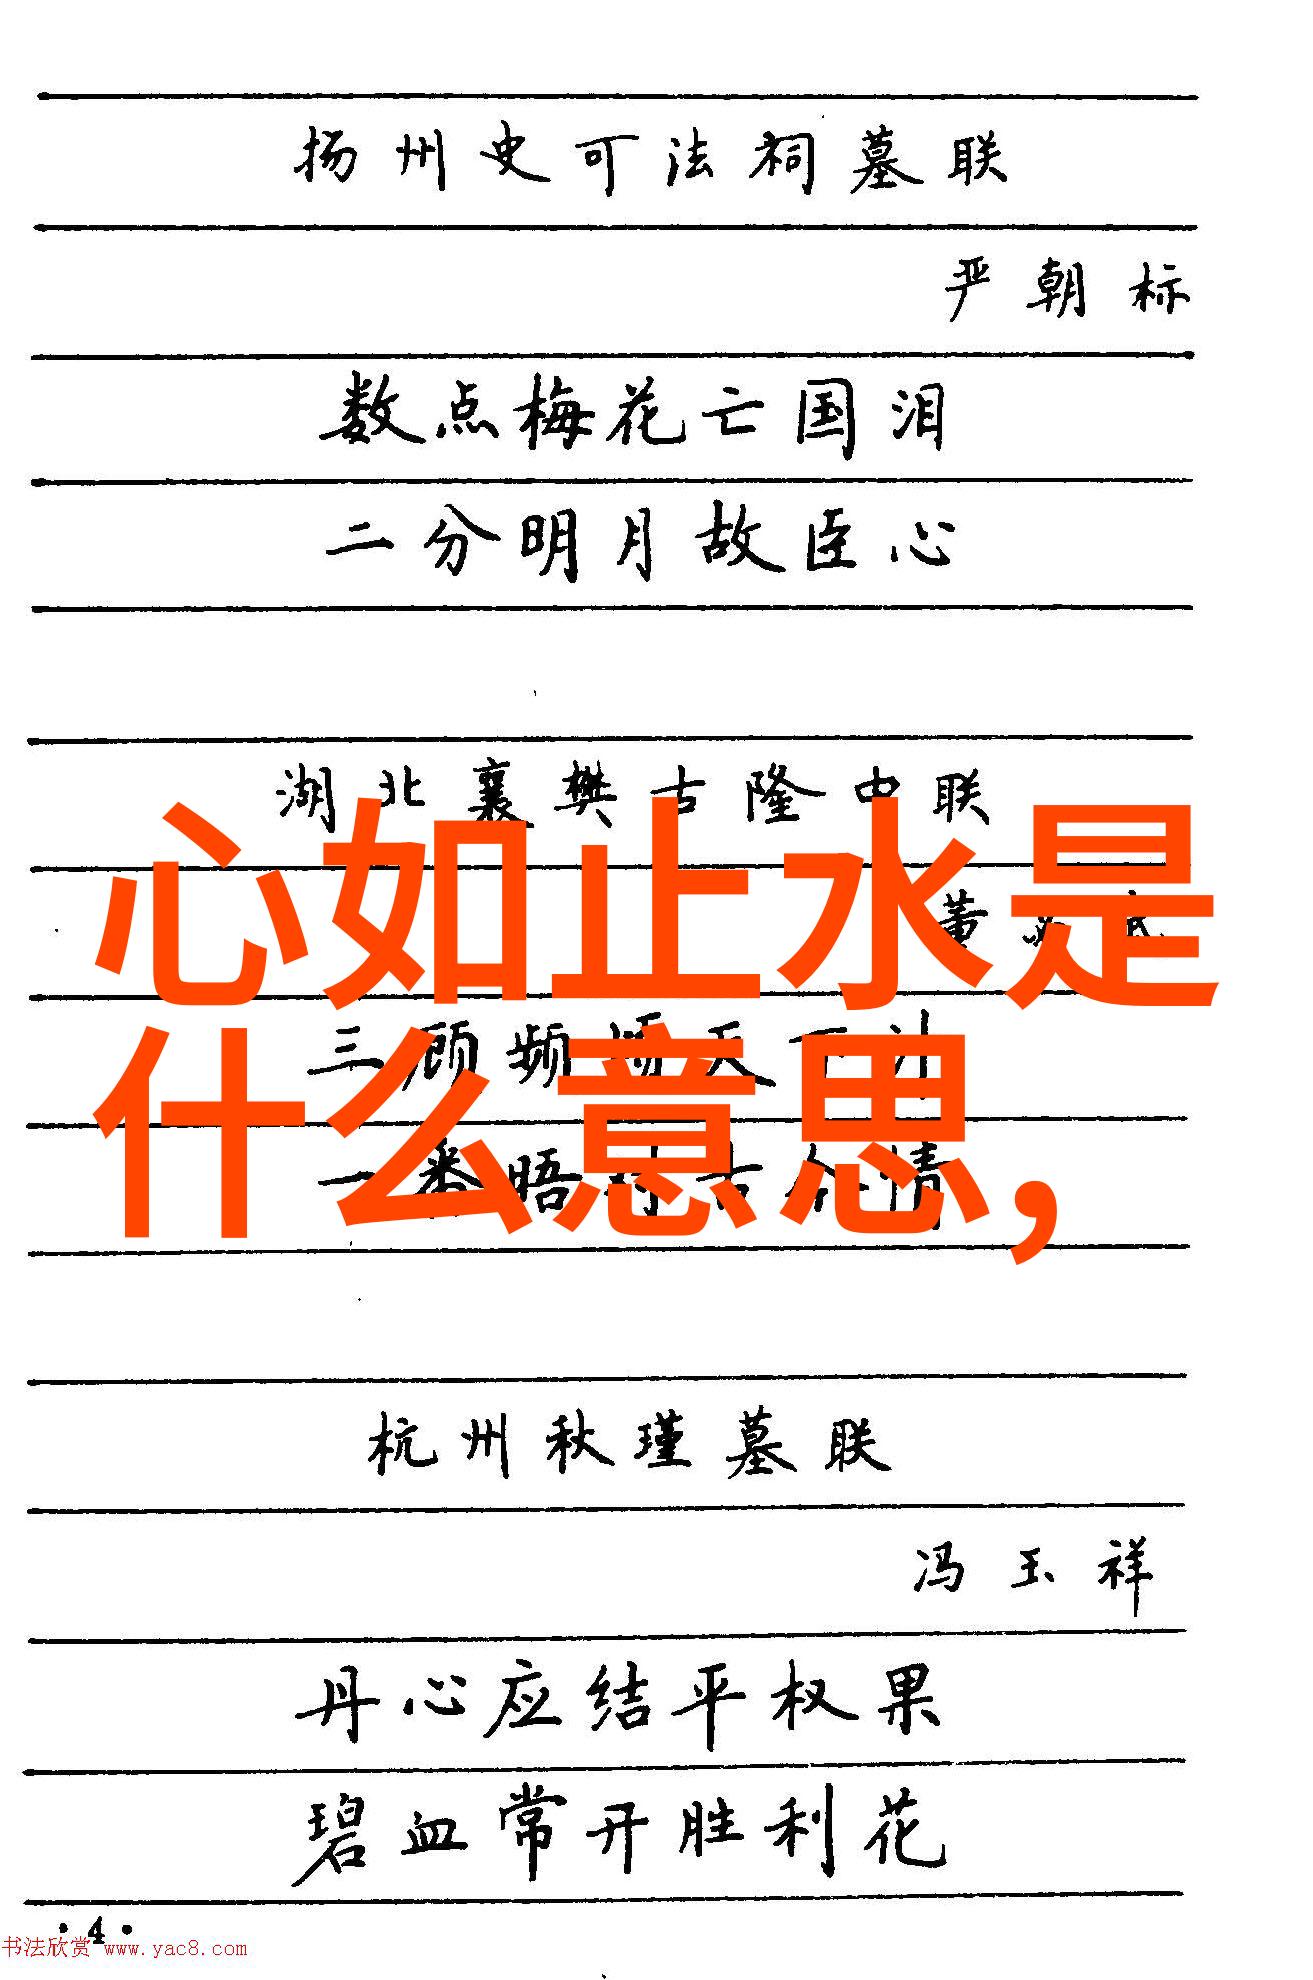 扬州史可法祠墓联
严朝标
数点梅花亡国泪
二分明月故臣心
湖北襄樊古隆中联
董
心如止水是
三顾频烦天下计
什么意思,
一番晤对古今情
杭州秋瑾墓联
冯玉祥
丹心应结平权果
碧血常开胜利花
·4·
书法欣赏 www.yac8.com